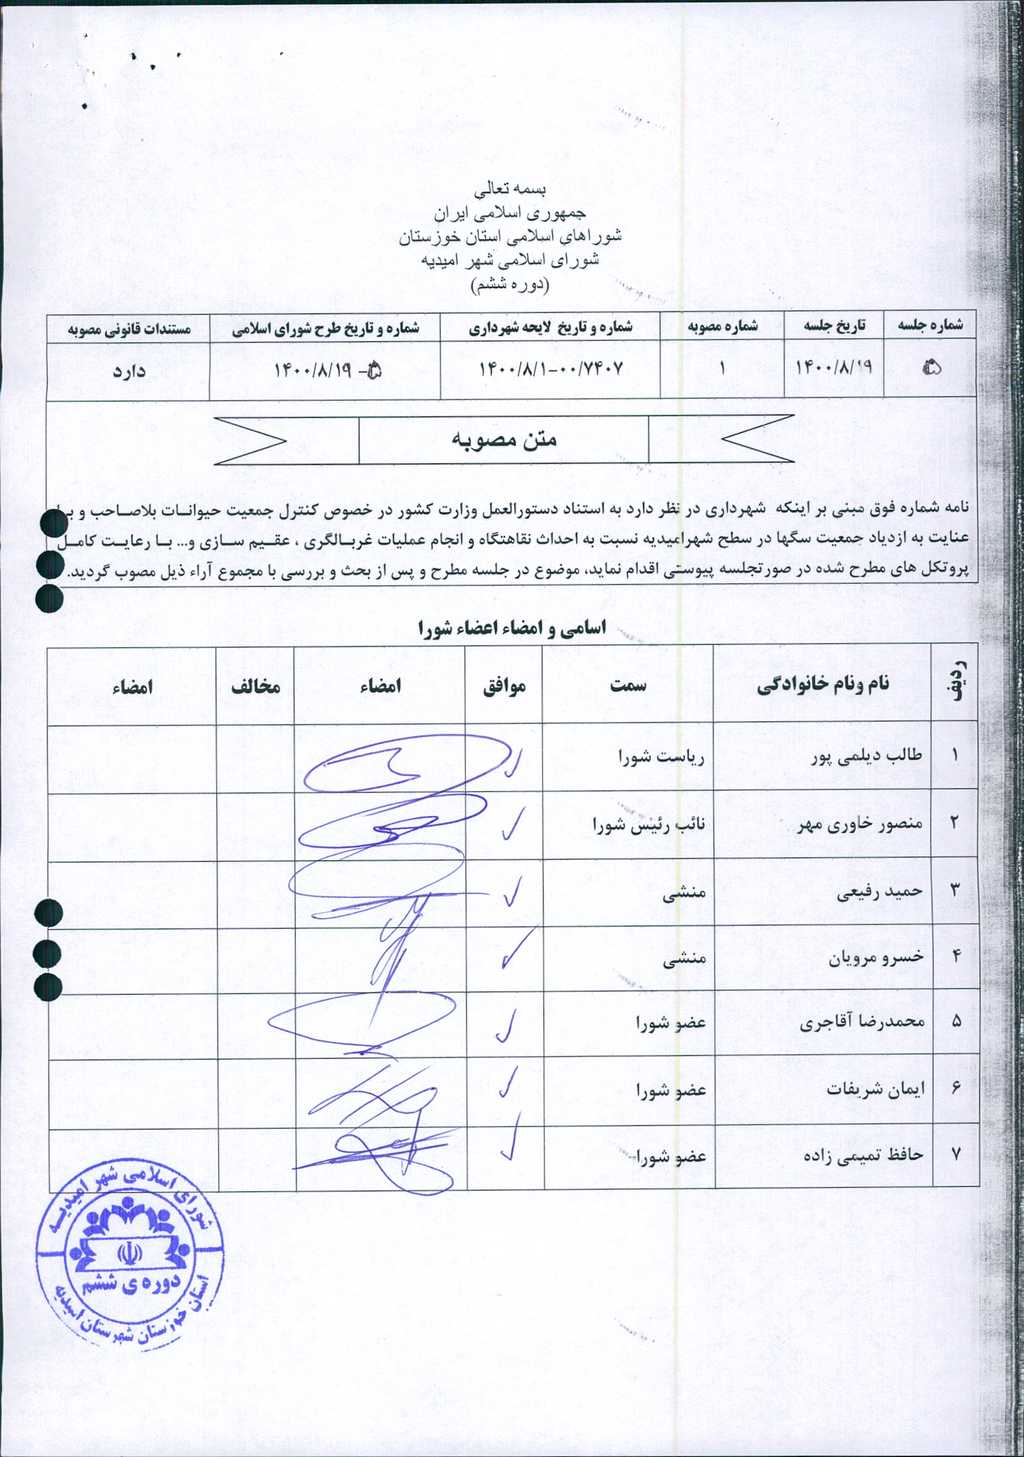 بسمه تعالی
جمهوری اسلامی ایران
شوراهای اسلامی استان خوزستان
شورای اسلامی شهر امیدیه
(دوره ششم)
شماره جلسه تاریخ جلسه شماره مصوبه شماره و تاریخ لایحه شهرداری شماره و تاریخ طرح شورای اسلامی مستندات قانونی مصوبه
۵ ۱۴۰۰/۸/۱۹ ۱ ۱۴۰۰/۸/۱-۰۰/۷۴۰۷ ۵- ۱۴۰۰/۸/۱۹ دارد
متن مصوبه
نامه شماره فوق مبنی بر اینکه شهرداری در نظر دارد به استناد دستورالعمل وزارت کشور در خصوص کنترل جمعیت حیوانات بلاصاحب و با
عنایت به ازدیاد جمعیت سگها در سطح شهرامیدیه نسبت به احداث نقاهتگاه و انجام عملیات غربالگری ، عقیم سازی و... با رعایت کامل
پروتکل های مطرح شده در صورتجلسه پیوستی اقدام نماید، موضوع در جلسه مطرح و پس از بحث و بررسی با مجموع آراء ذیل مصوب گردید.
اسامی و امضاء اعضاء شورا
ردیف نام ونام خانوادگی سمت موافق امضاء مخالف امضاء
۱ طالب دیلمی پور ریاست شورا
۲ منصور خاوری مهر نائب رئیس شورا
۳ حمید رفیعی منشی
۴ خسرو مرویان منشی
۵ محمدرضا آقاجری عضو شورا
۶ ایمان شریفات عضو شورا
۷ حافظ تمیمی زاده عضو شورا
شورای اسلامی شهر امیدیه
دوره ی ششم
استان خوزستان شهرستان امیدیه